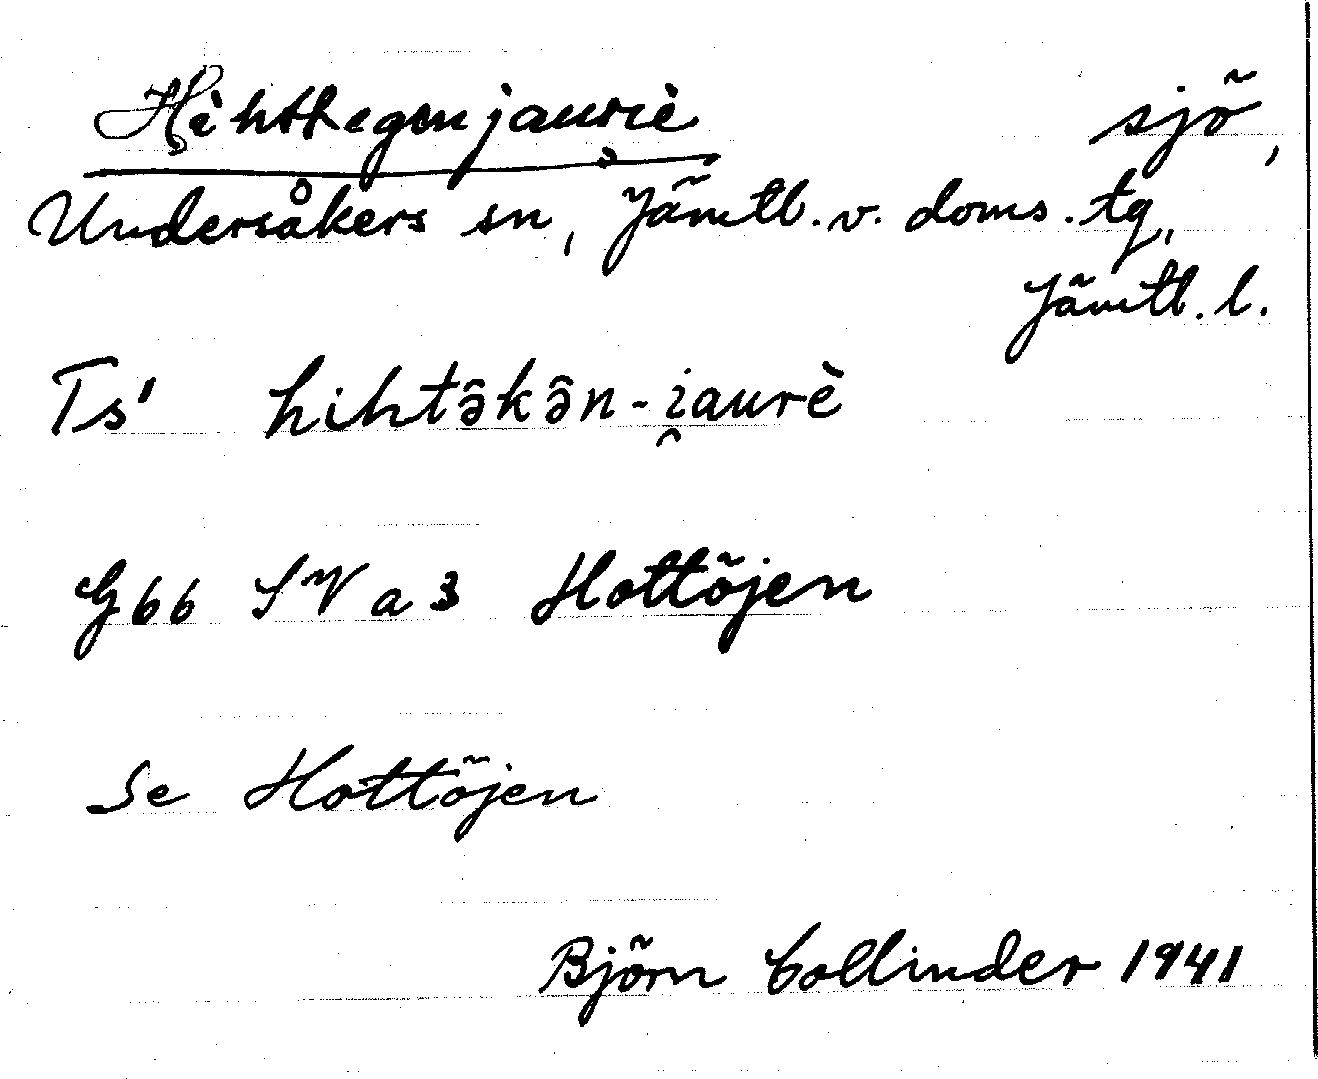 Hèhthegenjaurè sjö,
Undersåkers sn, Jämtl. v. doms. tg,
Jämtl. l.
Ts' hihtə̂kə̂n-i̯aurè
G66 SV a 3 Hottöjen
Se Hottöjen
Björn Collinder 1941